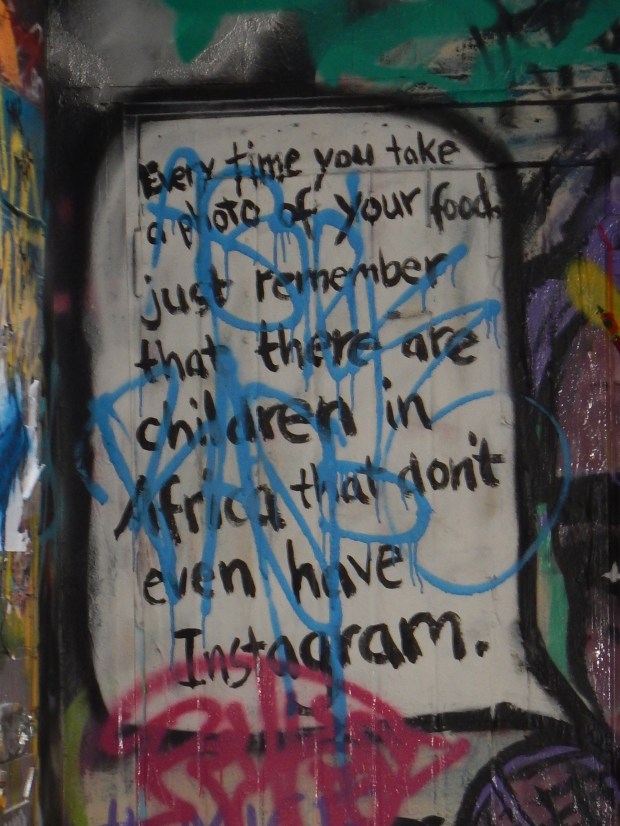 Every time you take
a photo of your food
just remember
that there are
children in
Africa that don't
even have
Instagram.